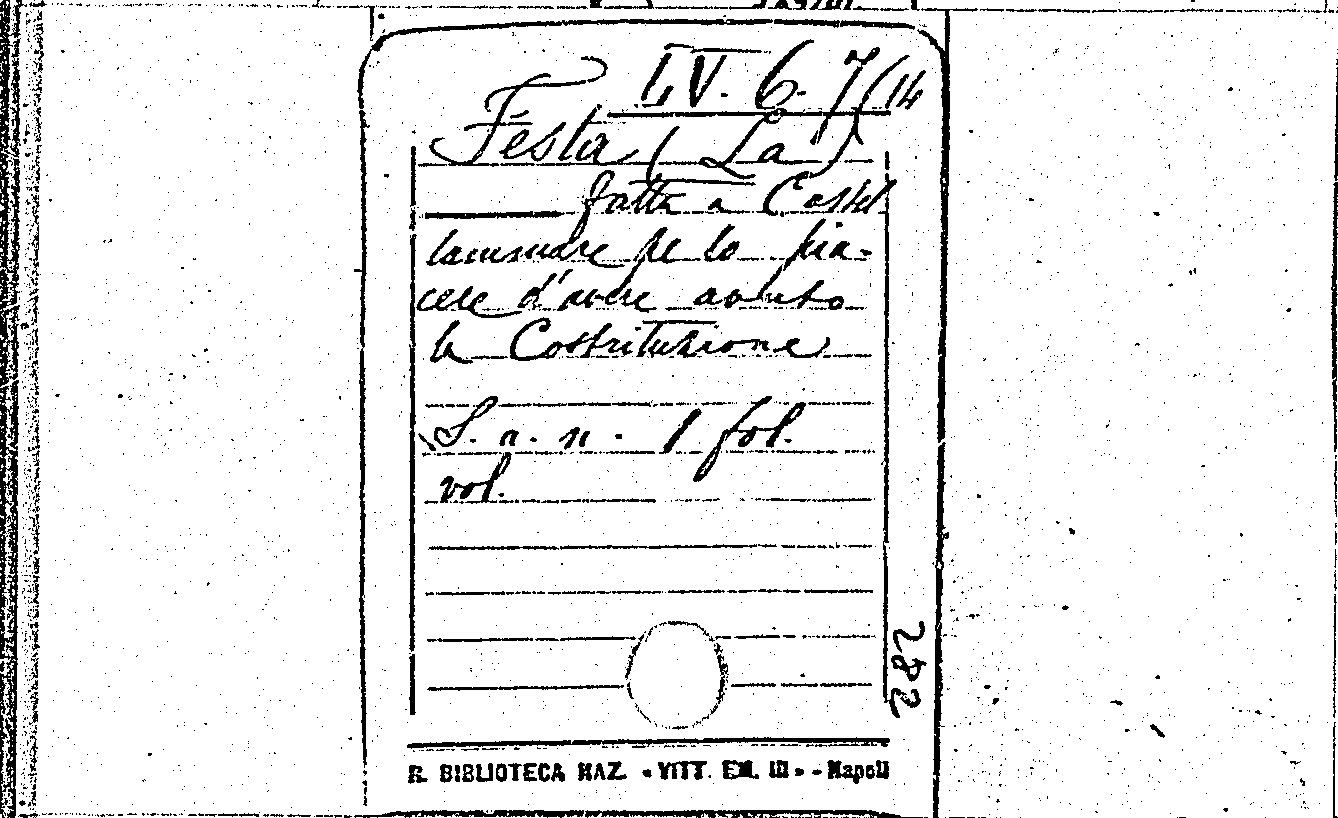 LV. 6. 7(14
Festa (La)
fatta a Castel
lammare pe lo pia-
cere d'avere avuto
la Costrituzione
S. a. n. 1 fol.
vol.
282
R. BIBLIOTECA NAZ. «VITT. EM. III» - Napoli